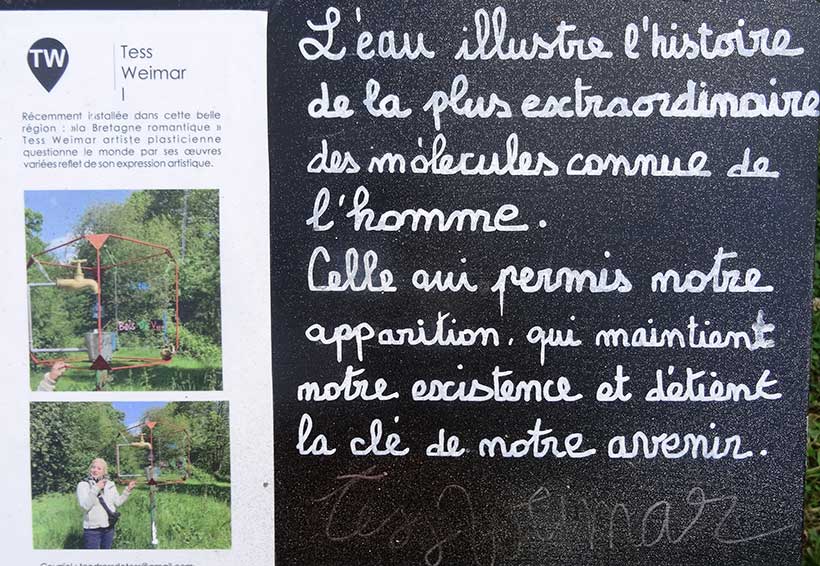 TW
Tess
Weimar
Récemment installée dans cette belle
région : »la Bretagne romantique »
Tess Weimar artiste plasticienne
questionne le monde par ses œuvres
variées reflet de son expression artistique.
L'eau illustre l'histoire
de la plus extraordinaire
des molécules connue de
l'homme.
Celle qui permis notre
apparition, qui maintient
notre existence et détient
la clé de notre avenir.